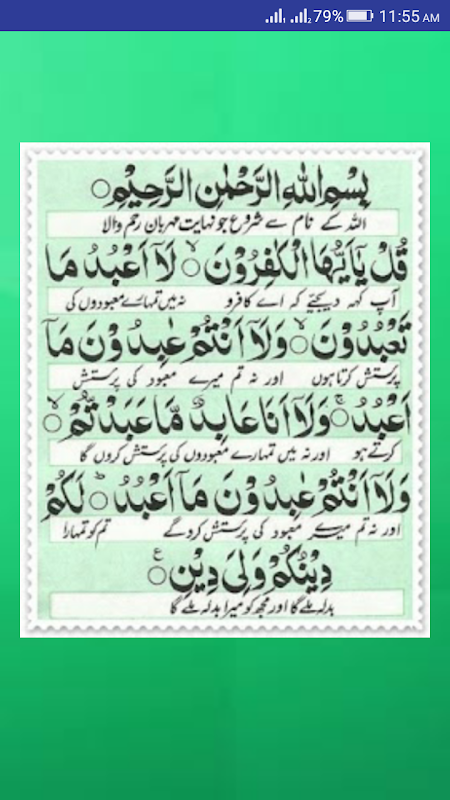 79% 11:55 AM
بِسْمِ اللهِ الرَّحْمٰنِ الرَّحِيْمِ
اللہ کے نام سے شروع جو نہایت مہربان رحم والا
قُلْ يٰۤاَيُّهَا الْكٰفِرُوْنَ ۙ لَاۤ اَعْبُدُ مَا
آپ کہہ دیجئے کہ اے کافرو نہ میں تمہارے معبودوں کی
تَعْبُدُوْنَ ۙ وَلَاۤ اَنْتُمْ عٰبِدُوْنَ مَاۤ
پرستش کرتا ہوں اور نہ تم میرے معبود کی پرستش
اَعْبُدُ ۚ وَلَاۤ اَنَا عَابِدٌ مَّا عَبَدْتُّمْ ۙ
کرتے ہو اور نہ میں تمہارے معبودوں کی پرستش کروں گا
وَلَاۤ اَنْتُمْ عٰبِدُوْنَ مَاۤ اَعْبُدُ ؕ لَكُمْ
اور نہ تم میرے معبود کی پرستش کرو گے تم کو تمہارا
دِيْنُكُمْ وَلِيَ دِيْنِ ۧ
بدلہ ملے گا اور مجھ کو میرا بدلہ ملے گا